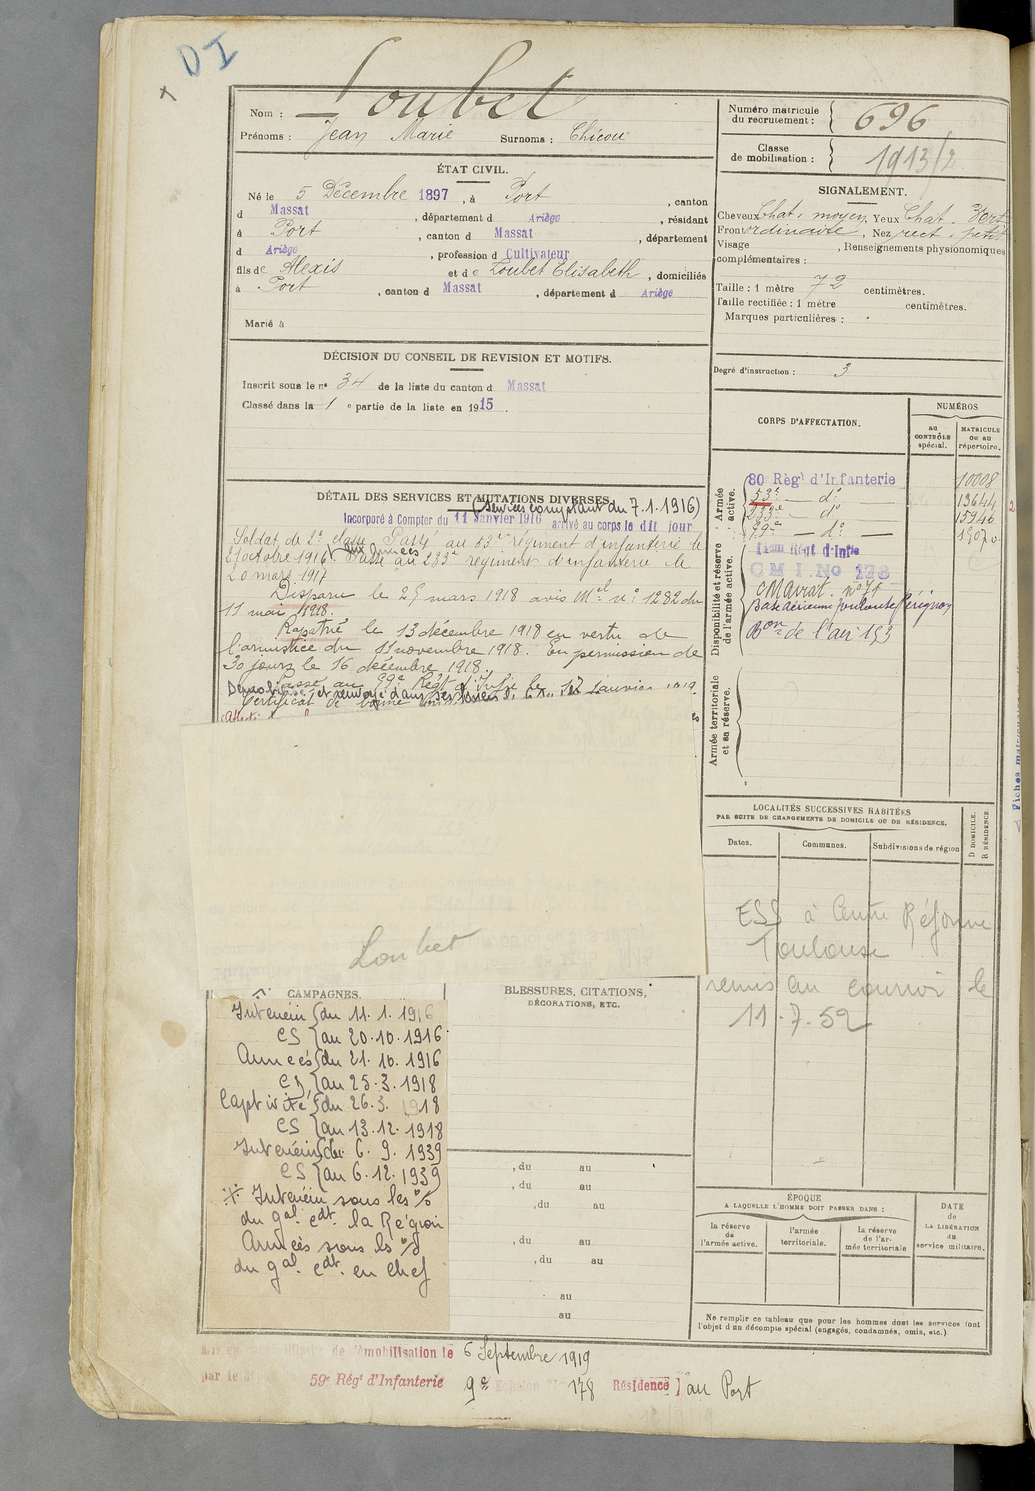 DI
Nom : Loubet
Prénoms : Jean Marie Surnoms : Chicou
Numéro matricule du recrutement : 696
Classe de mobilisation : 1913/2
ÉTAT CIVIL.
Né le 5 Décembre 1897, à Port, canton
d Massat, département d Ariège, résidant
à Port, canton d Massat, département
d Ariège, profession d Cultivateur
fils de Alexis et de Loubet Elisabeth, domiciliés
à Port, canton d Massat, département d Ariège
Marié à
SIGNALEMENT.
Cheveux Chat. moyen. Yeux Chat.
Front ordinaire, Nez rect. petit
Visage , Renseignements physionomiques
complémentaires :
Taille : 1 mètre 72 centimètres.
Taille rectifiée : 1 mètre centimètres.
Marques particulières :
Degré d'instruction : 3
DÉCISION DU CONSEIL DE REVISION ET MOTIFS.
Inscrit sous le nº 34 de la liste du canton d Massat
Classé dans la 1 e partie de la liste en 1915.
CORPS D'AFFECTATION.
NUMÉROS
au CONTRÔLE spécial.
MATRICULE ou au répertoire.
Armée active.
80 Régt d'Infanterie 10008
53e — do 13644
233e — do 15946
99e — do 15070
Disponibilité et réserve de l'armée active.
Régt d'Infie
C M I. No 178
Base aérienne Toulouse
Bon de l'air 153
Armée territoriale et sa réserve.
DÉTAIL DES SERVICES ET MUTATIONS DIVERSES
(services comptant du 7.1.1916)
Incorporé à Compter du 11 Janvier 1916 arrivé au corps le dit jour
Soldat de 2e classe. Passé au 53e régiment d'infanterie le
21 octobre 1916 aux armées. Passé au 233e régiment d'infanterie le
20 mars 1917
Disparu le 25 mars 1918 avis Mel nº 1282 du
11 mai 1918.
Rapatrié le 13 décembre 1918 en vertu de
l'armistice du 11 novembre 1918. En permission de
30 jours le 16 décembre 1918.
Passé au 99e Régt d'Infie le 17 Janvier 1919
Certificat de bonne
Loubet
LOCALITÉS SUCCESSIVES HABITÉES
PAR SUITE DE CHANGEMENTS DE DOMICILE OU DE RÉSIDENCE.
Dates. Communes. Subdivisions de région
D DOMICILE. R RÉSIDENCE
ESS à Centre Réforme
Toulouse
remis au courrier le
11.7.52
CAMPAGNES.
Intérieur du 11.1.1916
CS au 20.10.1916
Armées du 21.10.1916
CD au 25.3.1918
Captivité du 26.3.1918
CS au 13.12.1918
Intérieur du 6.9.1939
CS au 6.12.1939
Intérieur sous les o/o
du gal. cdt. la Région
Armées sous ls o/o
du gal. cdt. en Chef
BLESSURES, CITATIONS,
DÉCORATIONS, ETC.
, du au
, du au
, du au
, du au
, du au
au
au
ÉPOQUE
A LAQUELLE L'HOMME DOIT PASSER DANS :
la réserve de l'armée active.
l'armée territoriale.
la réserve de l'armée territoriale
DATE de LA LIBÉRATION du service militaire.
Ne remplir ce tableau que pour les hommes dont les services font
l'objet d'un décompte spécial (engagés, condamnés, omis, etc.).
de démobilisation le 6 Septembre 1919
par le 59e Régt d'Infanterie 9e Echelon 178 Résidence au Port